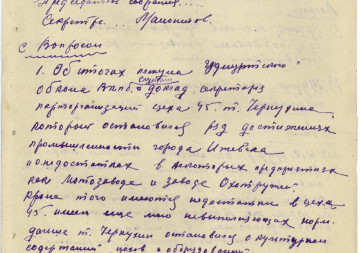 Председатель собрания...
Секретарь... Мальников.
с Вопросом
1. Об итогах пленума Удмуртского
слушали
Обкома ВКП(б). доклад секретаря
парторганизации цеха 45. т. Черкухина,
который остановился ряд достижениях
промышленности города Ижевска
и о недостатках в некоторых предприятиях
как Мотозаводе и заводе Охотружей
кроме того имеются недостатки в цеха
45. имеем еще много невыполняющих норм.
далше т. Черкухин остановился о культурном
содержаний цехов и оборудований